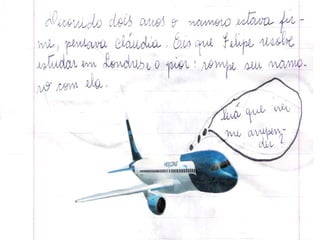 Decorrido dois anos o namoro estava fir-
me, pensava Cláudia. Eis que Felipe resolve
estudar em Londres e o pior: rompe seu namo-
ro com ela.
Será que irei
me arrepen-
der?